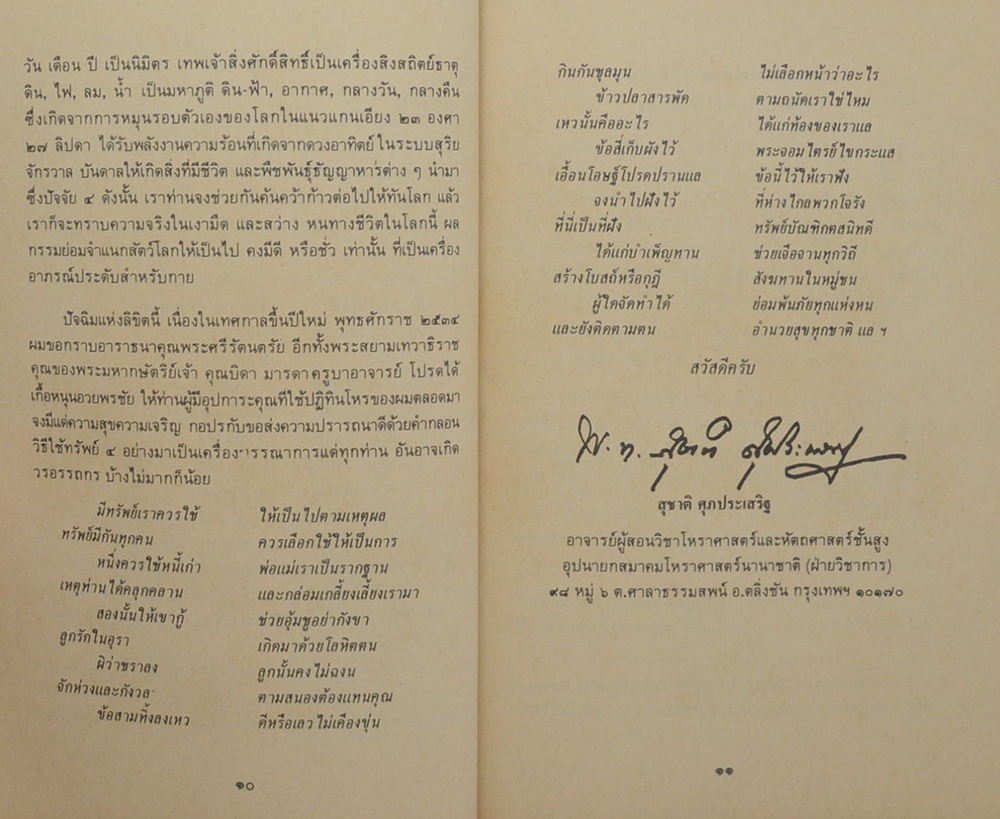 วัน เดือน ปี เป็นนิมิตร เทพเจ้าสิ่งศักดิ์สิทธิ์เป็นเครื่องสิงสถิตย์ธาตุ
ดิน, ไฟ, ลม, น้ำ เป็นมหาภูติ ดิน-ฟ้า, อากาศ, กลางวัน, กลางคืน
ซึ่งเกิดจากการหมุนรอบตัวเองของโลกในแนวแกนเอียง ๒๓ องศา
๒๗ ลิปดา ได้รับพลังงานความร้อนที่เกิดจากดวงอาทิตย์ในระบบสุริย
จักรวาล บันดาลให้เกิดสิ่งที่มีชีวิต และพืชพันธุ์ธัญญาหาร่ต่าง ๆ นำมา
ซึ่งปัจจัย ๔ ดังนั้น เราท่านจงช่วยกันค้นคว้าก้าวต่อไปให้ทันโลก แล้ว
เราก็จะทราบความจริงในเงามืด และสว่าง หนทางชีวิตในโลกนี้ ผล
กรรมย่อมจำแนกสัตว์โลกให้เป็นไป คงมีดี หรือชั่ว เท่านั้น ที่เป็นเครื่อง
อาภรณ์ประดับสำหรับกาย
ปัจฉิมแห่งลิขิตนี้ เนื่องในเทศกาลขึ้นปีใหม่ พุทธศักราช ๒๕๓๔
ผมขอกราบอาราธนาคุณพระศรีรัตนตรัย อีกทั้งพระสยามเทวาธิราช
คุณของพระมหากษัตริย์เจ้า คุณบิดา มารดาครูบาอาจารย์ โปรดได้
เกื้อหนุนอวยพรชัย ให้ท่านผู้มีอุปการะคุณที่ใช้ปฏิทินโหรของผมตลอดมา
จงมีแต่ความสุขความเจริญ กอปรกับขอส่งความปรารถนาดีด้วยคำกลอน
วิธีใช้ทรัพย์ ๔ อย่างมาเป็นเครื่อง รรณาการแด่ทุกท่าน อันอาจเกิด
วรอรรถกร บ้างไม่มากก็น้อย
มีทรัพย์เราควรใช้ ให้เป็นไปตามเหตุผล
ทรัพย์มีกันทุกคน ควรเลือกใช้ให้เป็นการ
หนึ่งควรใช้หนี้เก่า พ่อแม่เราเป็นรากฐาน
เหตุท่านได้คลุกคลาน และกล่อมเกลี้ยงเลี้ยงเรามา
สองนั้นให้เขากู้ ช่วยอุ้มชูอย่ากังขา
ลูกรักในอุรา เกิดมาด้วยโลหิตตน
ผิว่าชราลง ลูกนั้นคงไม่ฉงน
จักห่วงและกังวล ตามสนองต้องแทนคุณ
ข้อสามทิ้งลงเหว ดีหรือเลวไม่เคืองขุ่น
๑๐
กินกันชุลมุน ไม่เลือกหน้าว่าอะไร
ข้าวปลาสารพัด ตามถนัดเราใช่ไหม
เหวนั้นคืออะไร ได้แก่ท้องของเราแล
ข้อสี่เก็บฝังไว้ พระจอมไตรย์ไขกระแส
เอื้อนโอษฐ์โปรดปรานแล ข้อนี้ไว้ให้เราฟัง
จงนำไปฝังไว้ ที่ห่างไกลพวกโจรัง
ที่นี่เป็นที่ฝัง ทรัพย์บัณฑิตสนิทดี
ได้แก่บำเพ็ญทาน ช่วยเจือจานทุกวิถี
สร้างโบสถ์หรือกุฎี สังฆทานในหมู่ชน
ผู้ใดจัดทำได้ ย่อมพ้นภัยทุกแห่งหน
และยังติดตามตน อำนวยสุขทุกชาติ แล ฯ
สวัสดีครับ
พ.ท. สุชาติ ศุภประเสริฐ
สุชาติ ศุภประเสริฐ
อาจารย์ผู้สอนวิชาโหราศาสตร์และหัตถศาสตร์ชั้นสูง
อุปนายกสมาคมโหราศาสตร์นานาชาติ (ฝ่ายวิชาการ)
๙๘ หมู่ ๖ ต.ศาลาธรรมสพน์ อ.ตลิ่งชัน กรุงเทพฯ ๑๐๑๗๐
๑๑